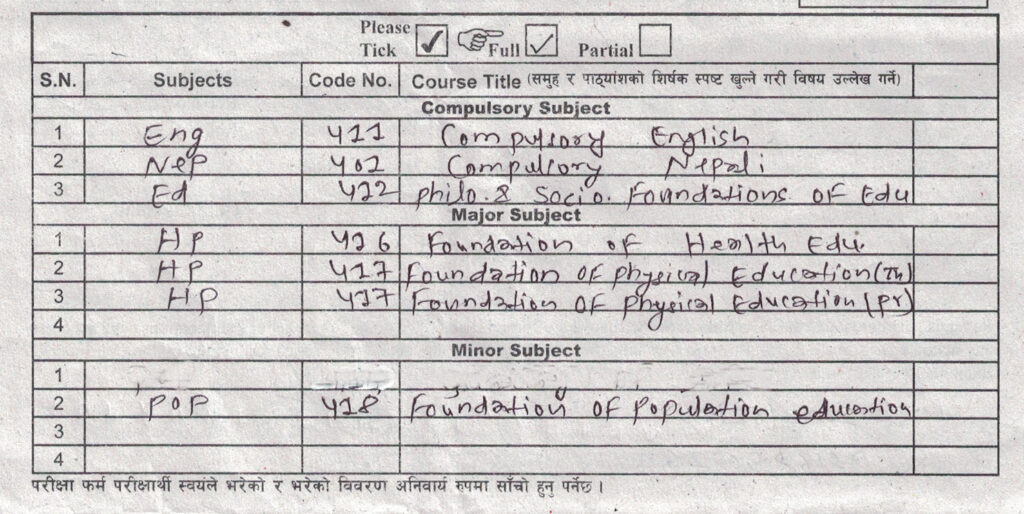 Please
Tick ✓ Full ✓ Partial
S.N. Subjects Code No. Course Title (समुह र पाठ्यांशको शिर्षक स्पष्ट खुल्ने गरी विषय उल्लेख गर्ने)
Compulsory Subject
1 Eng 411 Compulsory English
2 Nep 401 Compulsory Nepali
3 Ed 412 philo. & Socio. Foundations of Edu
Major Subject
1 HP 416 Foundation of Health Edu.
2 HP 417 Foundation of physical Education (Th)
3 HP 417 Foundation of physical Education (pr)
4
Minor Subject
1
2 POP 418 Foundation of Population education
3
4
परीक्षा फर्म परीक्षार्थी स्वयंले भरेको र भरेको विवरण अनिवार्य रुपमा साँचो हुनु पर्नेछ ।